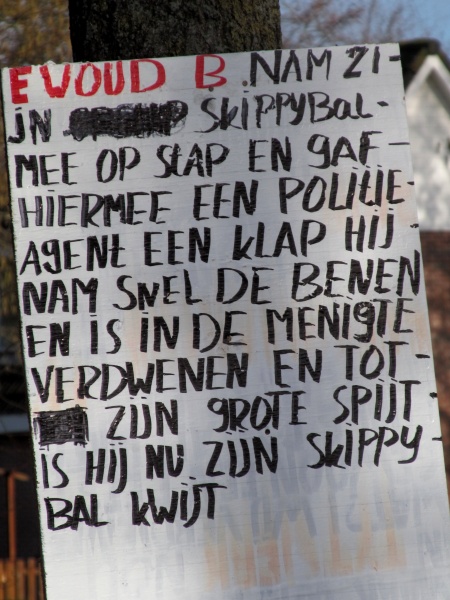 EWOUD B. NAM ZI-
JN SKIPPYBAL-
MEE OP STAP EN GAF-
HIERMEE EEN POLITIE-
AGENT EEN KLAP HIJ-
NAM SNEL DE BENEN
EN IS IN DE MENIGTE
VERDWENEN EN TOT-
ZIJN GROTE SPIJT-
IS HIJ NU ZIJN SKIPPY-
BAL KWIJT